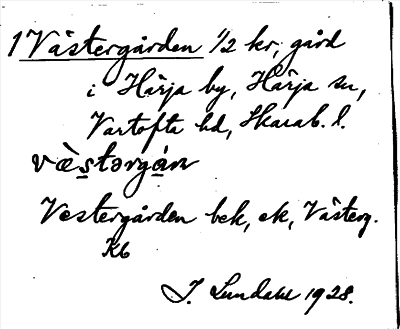 1 Västergården 1/2 kr, gård
i Härja by, Härja sn,
Vartofta hd, Skarab. l.
vὲstərgán
Vestergården bek, ek, Västerg.
Kb
J. Lundahl 1928.